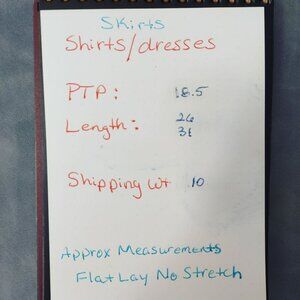 Skirts
Shirts/dresses
PTP: 18.5
Length: 26
31
Shipping wt 10
Approx Measurements
Flat Lay No Stretch